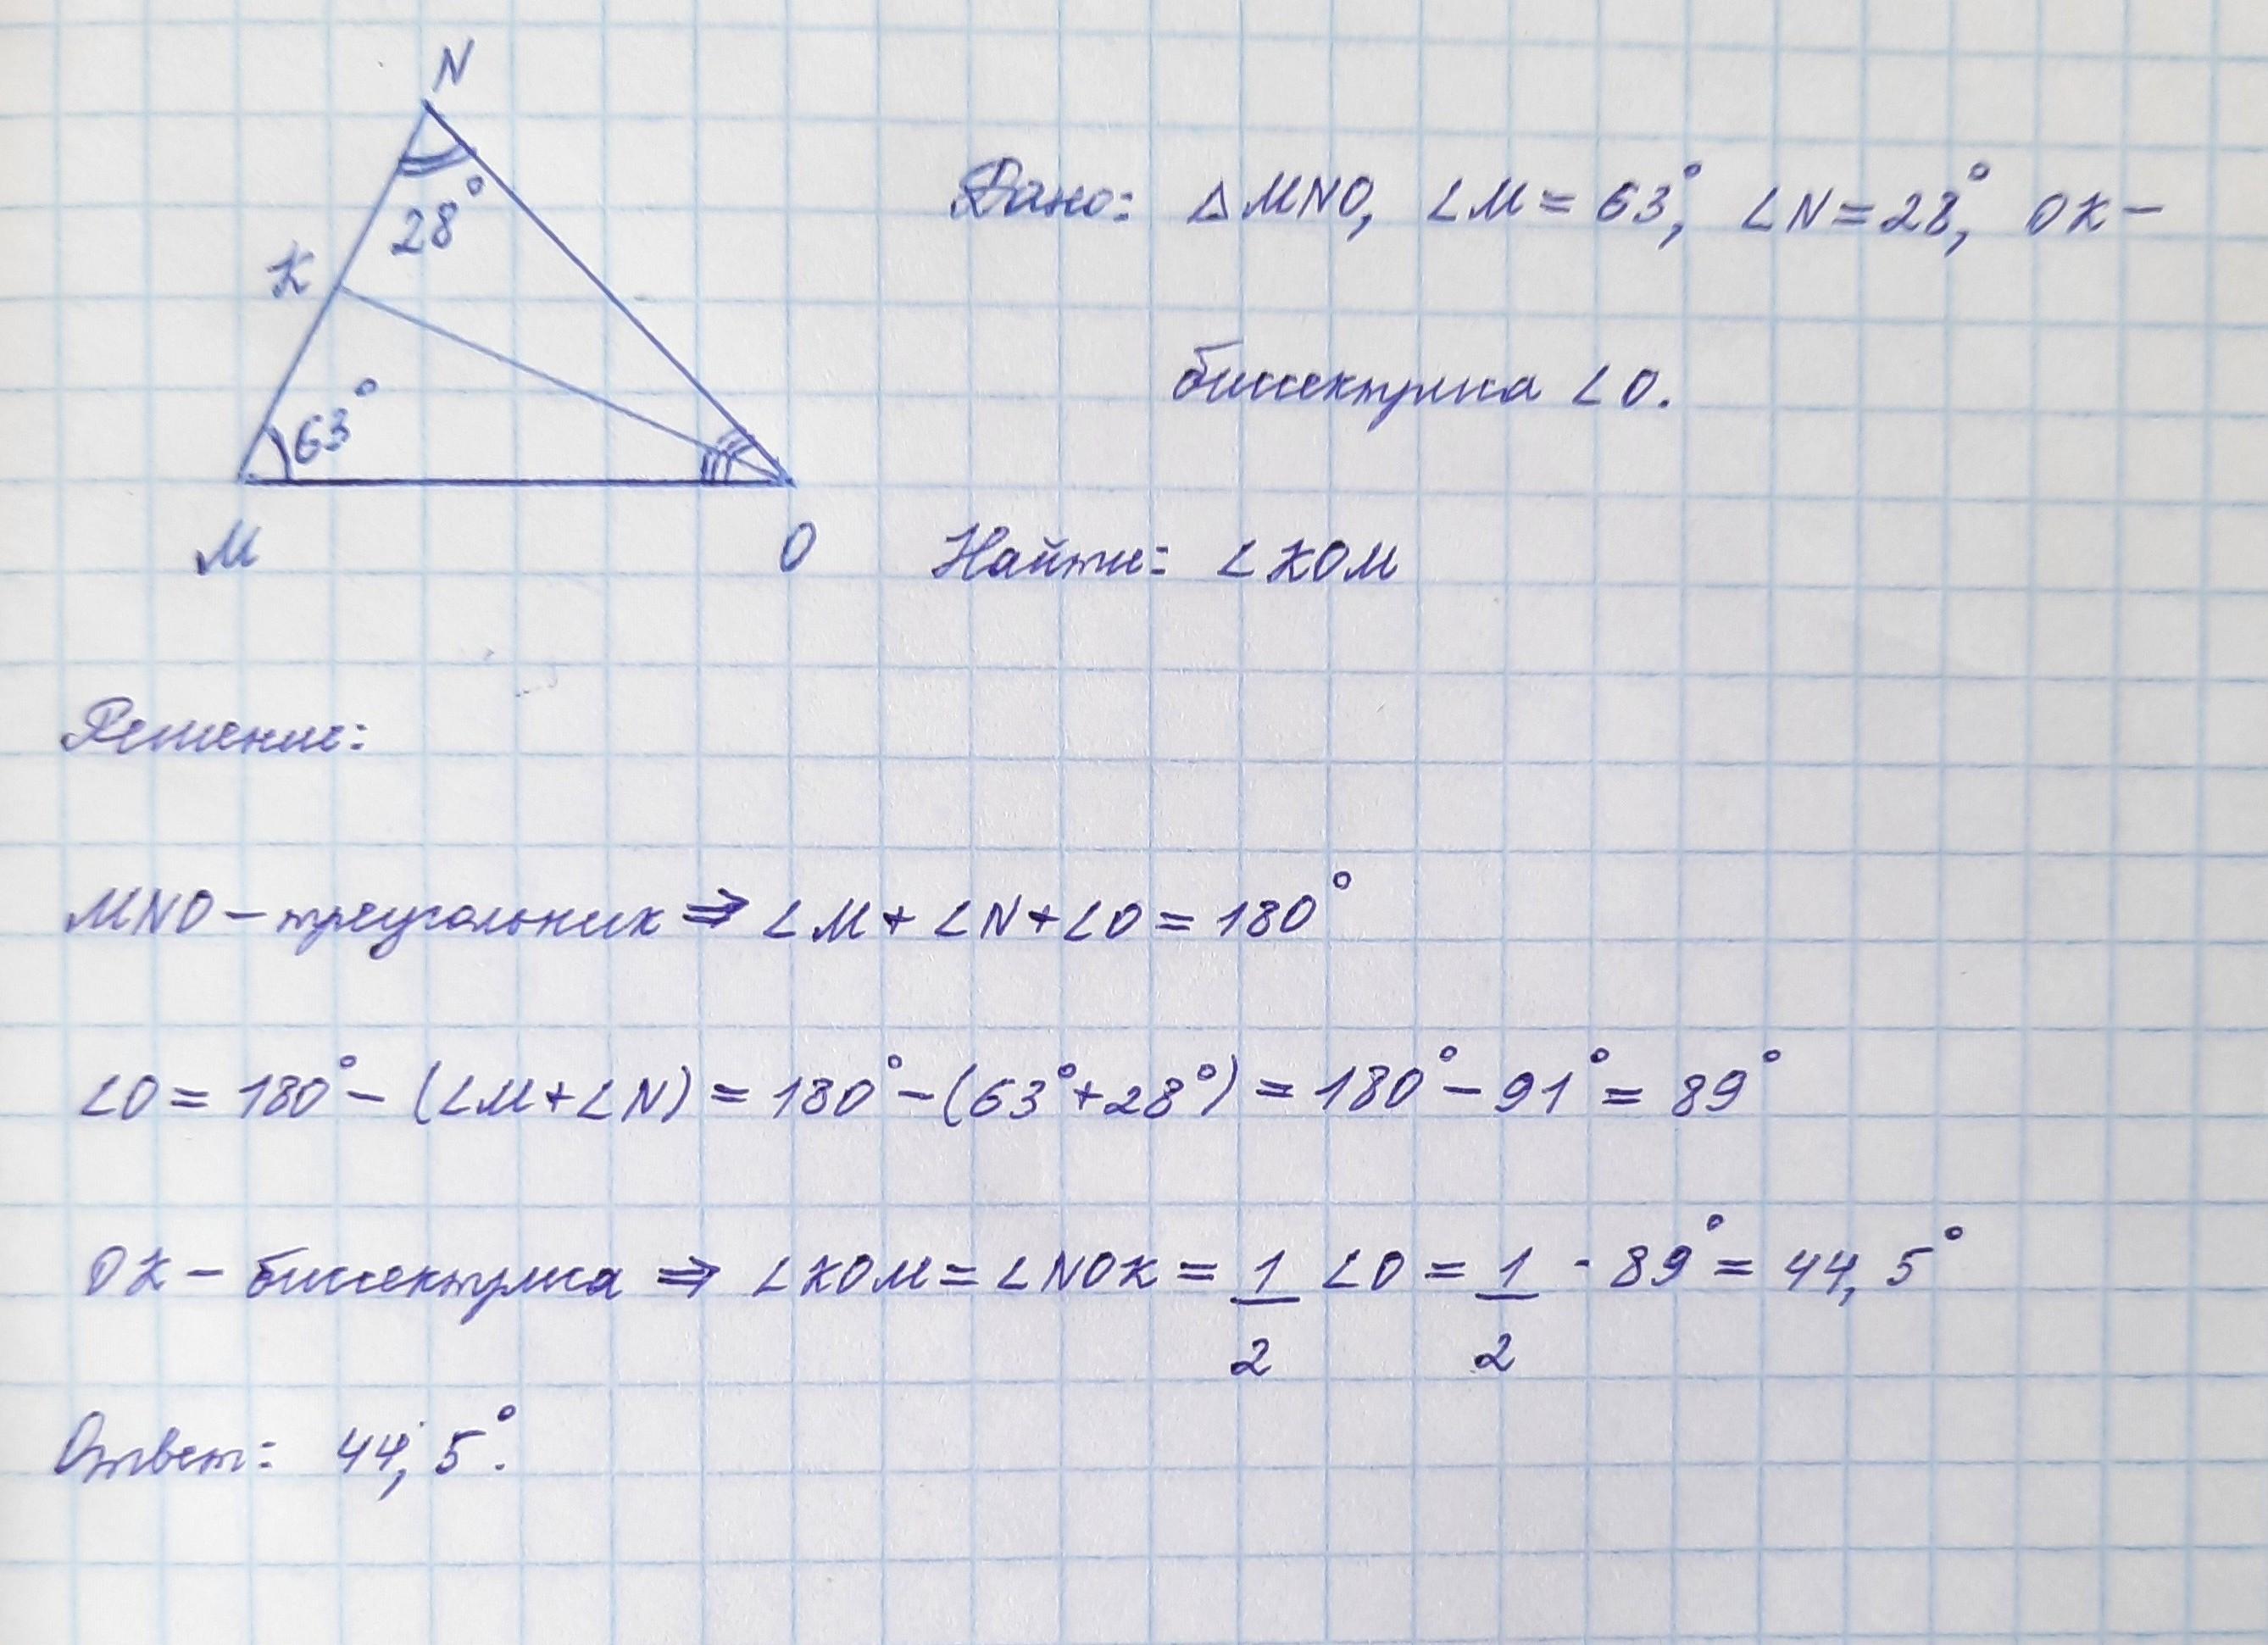 N
Дано: △MNO, ∠M = 63°, ∠N = 28°, OK –
28°
K
биссектриса ∠O.
63°
M
O
Найти: ∠KOM
Решение:
MNO – треугольник ⇒ ∠M + ∠N + ∠O = 180°
∠O = 180° – (∠M + ∠N) = 180° – (63° + 28°) = 180° – 91° = 89°
OK – биссектриса ⇒ ∠KOM = ∠NOK = 1/2 ∠O = 1/2 · 89° = 44,5°
Ответ: 44,5°.